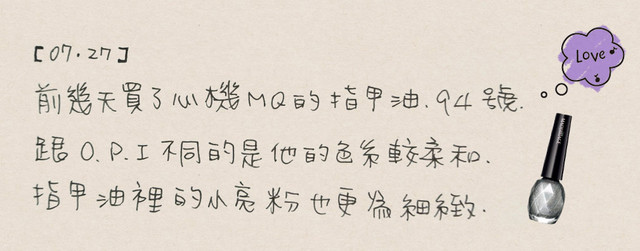 [07.27]
Love
前幾天買了心機MQ的指甲油.94號.
跟O.P.I不同的是他的色系較柔和.
指甲油裡的小亮粉也更為細緻.